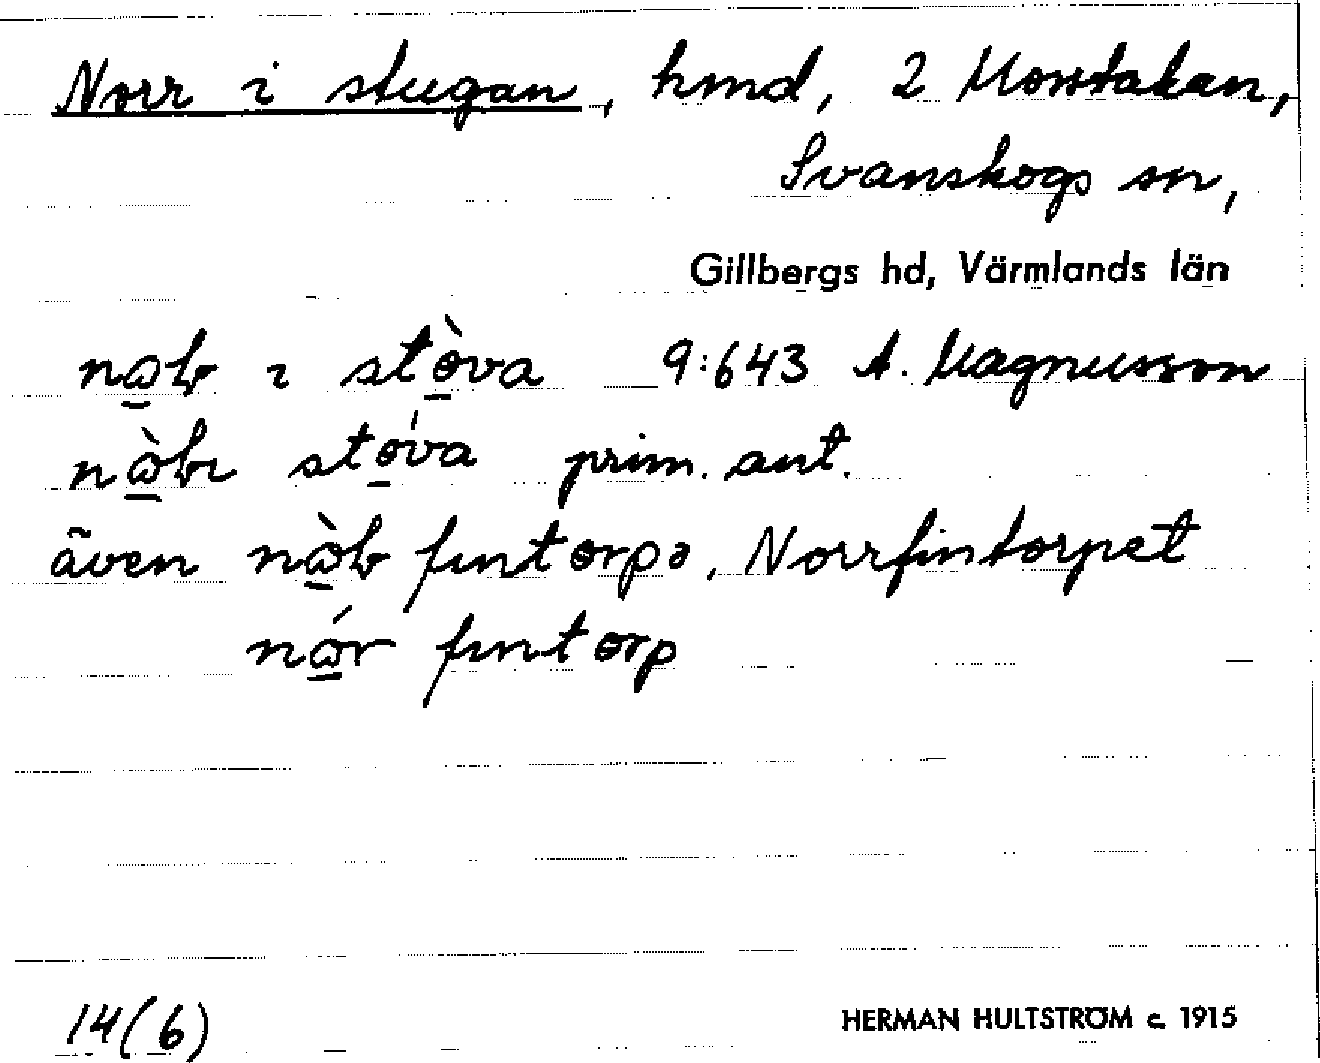 Norr i stugan, hmd, 2 Mosstakan,
Svanskogs sn,
Gillbergs hd, Värmlands län
i stòva 9:643 A. Magnusson
stóva prim. ant.
även fintorpə, Norrfintorpet
fintorp
14(6)
HERMAN HULTSTRÖM c. 1915